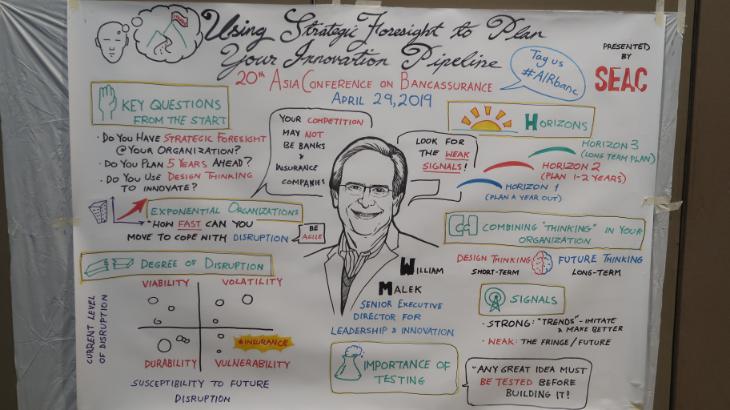 Using Strategic Foresight to Plan
Your Innovation Pipeline
20th Asia Conference on Bancassurance
April 29, 2019
Tag us
#AIRbanc
PRESENTED
BY
SEAC
KEY QUESTIONS
FROM THE START
· DO YOU HAVE STRATEGIC FORESIGHT
@ YOUR ORGANIZATION?
· DO YOU PLAN 5 YEARS AHEAD?
· DO YOU USE DESIGN THINKING
TO INNOVATE?
EXPONENTIAL ORGANIZATIONS
"HOW FAST CAN YOU
MOVE TO COPE WITH DISRUPTION
BE
AGILE
DEGREE OF DISRUPTION
VIABILITY
VOLATILITY
CURRENT LEVEL
OF DISRUPTION
INSURANCE
DURABILITY
VULNERABILITY
SUSCEPTIBILITY TO FUTURE
DISRUPTION
YOUR COMPETITION
MAY NOT
BE BANKS &
INSURANCE
COMPANIES
LOOK FOR
THE WEAK
SIGNALS!
WILLIAM
MALEK
SENIOR EXECUTIVE
DIRECTOR FOR
LEADERSHIP & INNOVATION
IMPORTANCE OF
TESTING
HORIZONS
HORIZON 3
(LONG TERM PLAN)
HORIZON 2
(PLAN 1-2 YEARS)
HORIZON 1
(PLAN A YEAR OUT)
COMBINING "THINKING" IN YOUR
ORGANIZATION
DESIGN THINKING
SHORT-TERM
FUTURE THINKING
LONG-TERM
SIGNALS
· STRONG: "TRENDS" - IMITATE
& MAKE BETTER
· WEAK: THE FRINGE/FUTURE
- ANY GREAT IDEA MUST
BE TESTED BEFORE
BUILDING IT!